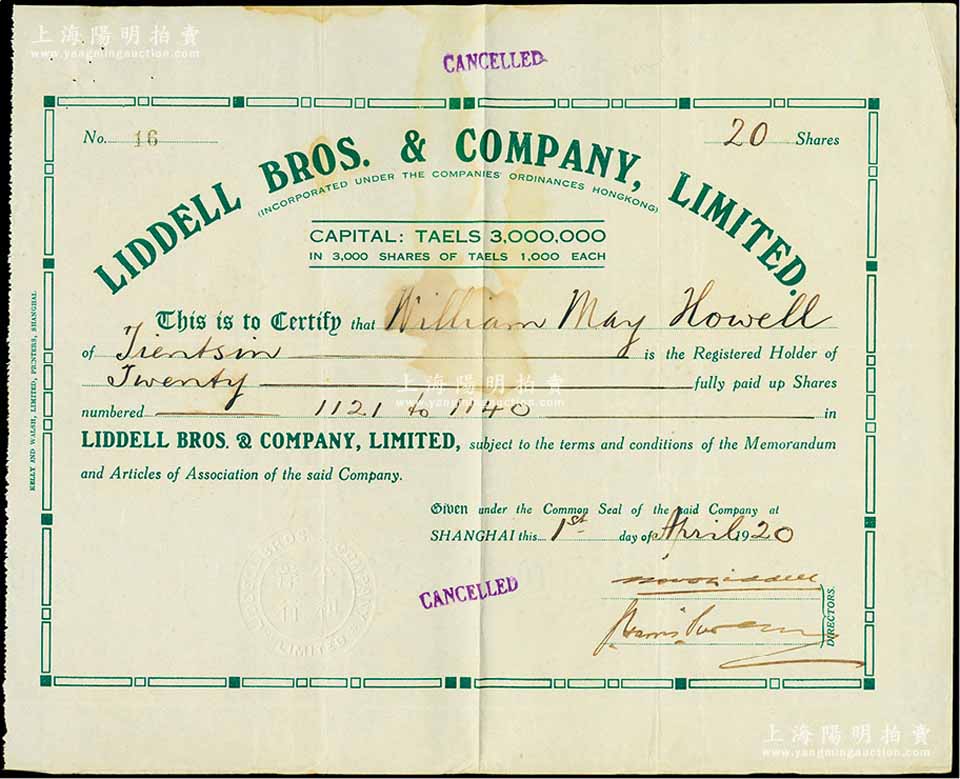 上海陽明拍賣
www.yangmingauction.com
CANCELLED
No. 16
20 Shares
LIDDELL BROS. & COMPANY, LIMITED.
(INCORPORATED UNDER THE COMPANIES' ORDINANCES HONGKONG)
CAPITAL: TAELS 3,000,000
IN 3,000 SHARES OF TAELS 1,000 EACH
This is to Certify that William May Howell
of Tientsin is the Registered Holder of
Twenty fully paid up Shares
上海陽明拍賣
www.yangmingauction.com
numbered 1121 to 1140 in
LIDDELL BROS. & COMPANY, LIMITED, subject to the terms and conditions of the Memorandum
and Articles of Association of the said Company.
Given under the Common Seal of the said Company at
SHANGHAI this 1st day of April 1920
CANCELLED
Liddell
DIRECTORS.
LIDDELL BROS. & COMPANY
LIMITED
KELLY AND WALSH, LIMITED, PRINTERS, SHANGHAI.
上海陽明拍賣
www.yangmingauction.com